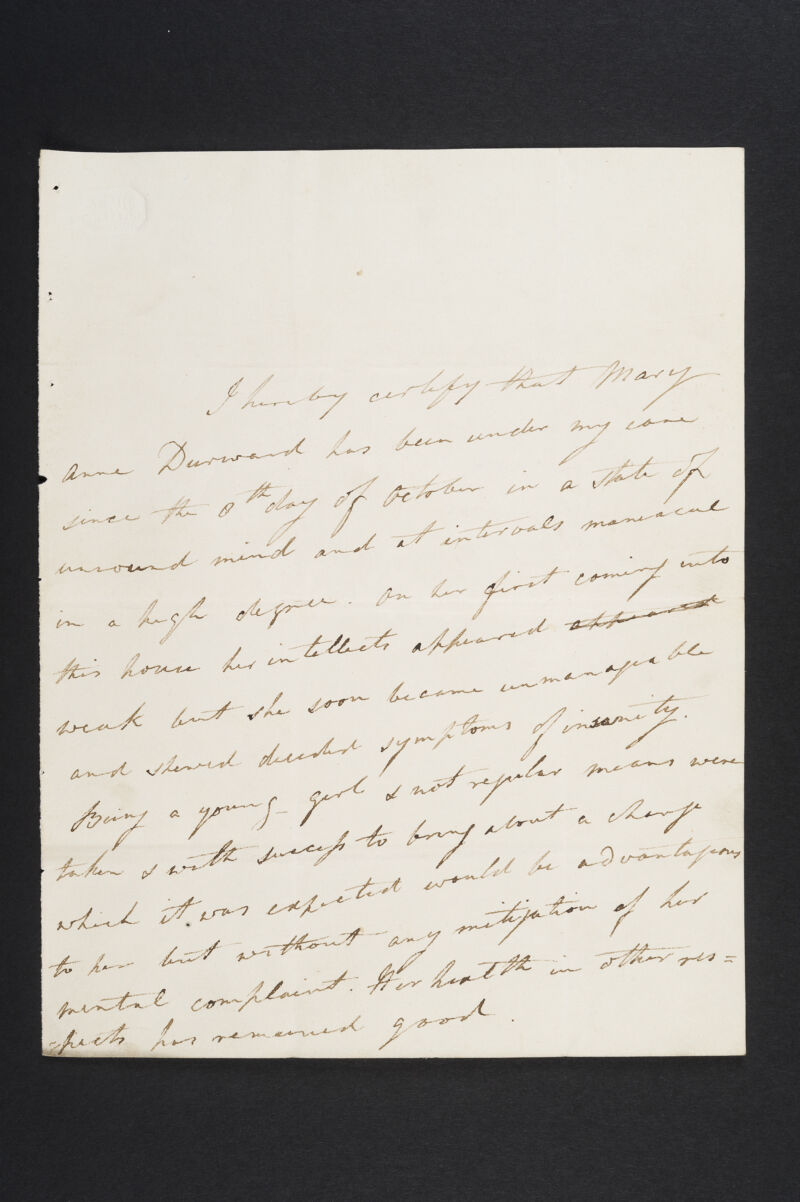 I hereby certify that Mary
Anne Durward has been under my care
since the 8th day of October in a state of
unsound mind and at intervals maniacal
in a high degree. On her first coming into
this house her intellects appeared appeared
weak but she soon became unmanageable
and shewed decided symptoms of insanity.
Being a young girl & not regular means were
taken & with success to bring about a change
which it was expected would be advantageous
to her but without any mitigation of her
mental complaint. Her health in other res=
=pects has remained good.